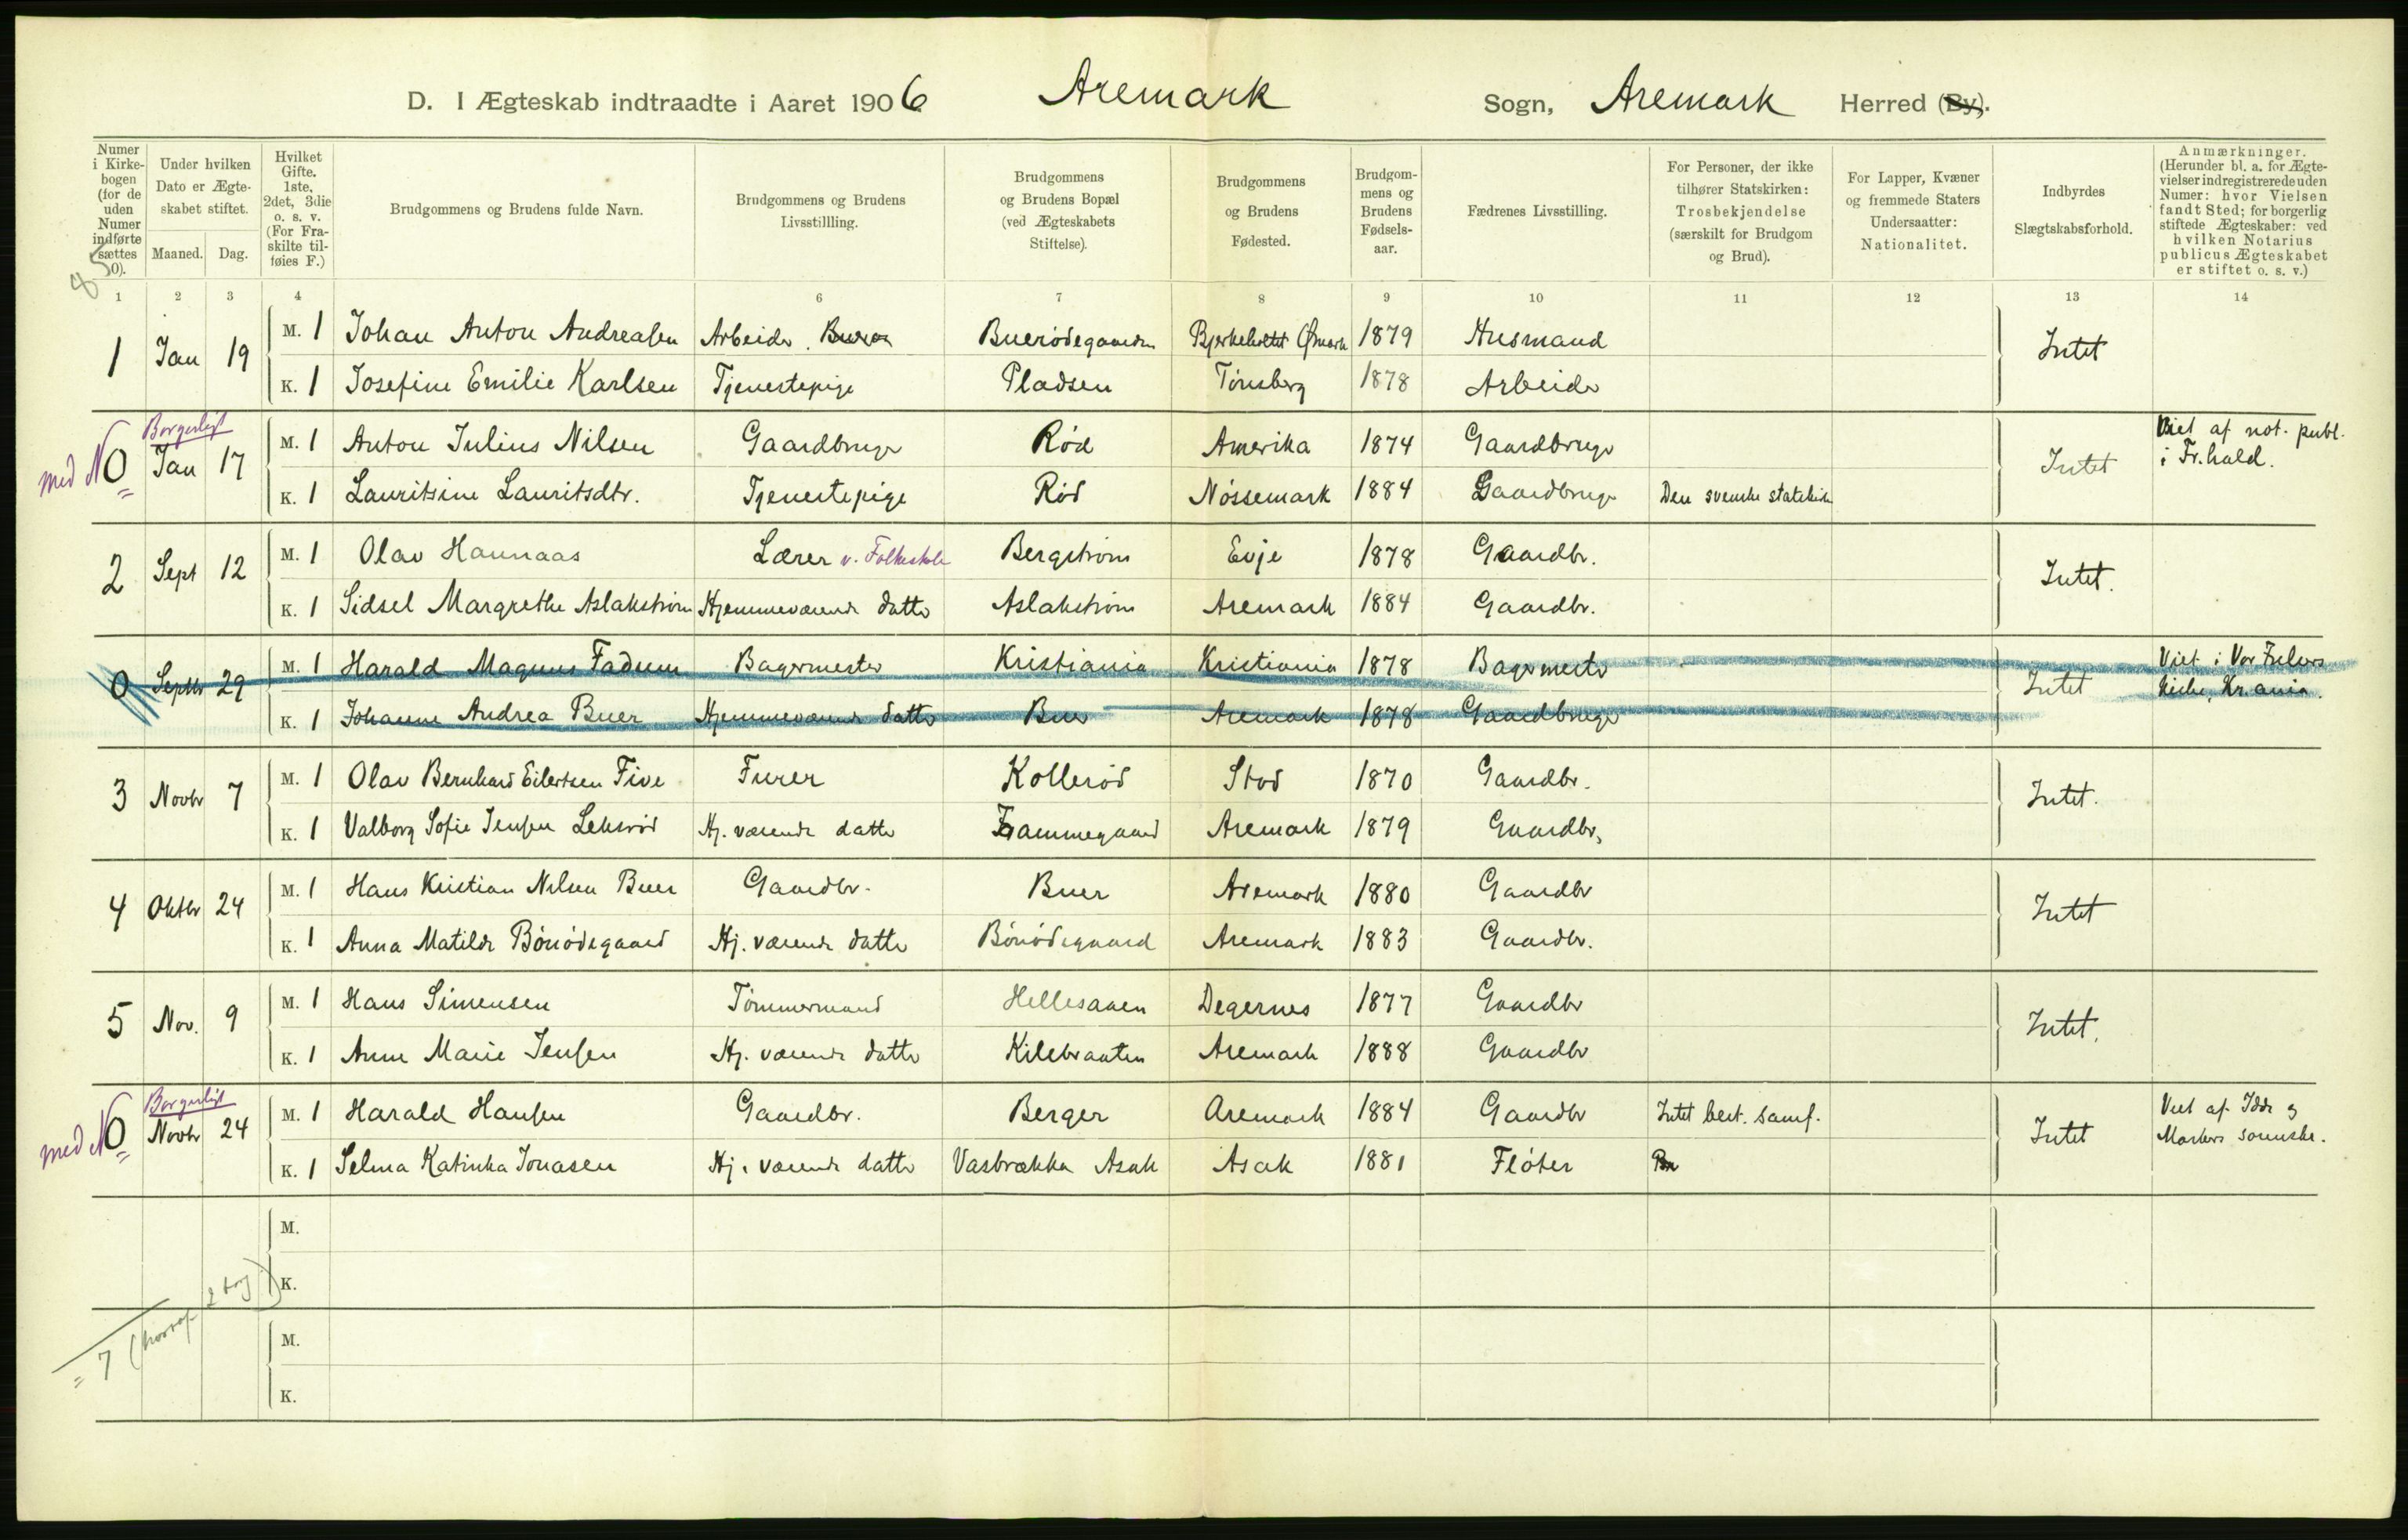 D. I Ægteskab indtraadte i Aaret 1906 Aremark Sogn, Aremark Herred (By).
Numer i Kirkebogen (for de uden Numer indførte sættes 0).
Under hvilken Dato er Ægteskabet stiftet.
Maaned. Dag.
Hvilket Gifte. 1ste, 2det, 3die o. s. v. (For Fraskilte tilføies F.)
Brudgommens og Brudens fulde Navn.
Brudgommens og Brudens Livsstillling.
Brudgommens og Brudens Bopæl (ved Ægteskabets Stiftelse).
Brudgommens og Brudens Fødested.
Brudgommens og Brudens Fødselsaar.
Fædrenes Livsstilling.
For Personer, der ikke tilhører Statskirken: Trosbekjendelse (særskilt for Brudgom og Brud).
For Lapper, Kvæner og fremmede Staters Undersaatter: Nationalitet.
Indbyrdes Slægtskabsforhold.
Anmærkninger. (Herunder bl. a. for Ægtevielser indregistrerede uden Numer: hvor Vielsen fandt Sted; for borgerlig stiftede Ægteskaber: ved hvilken Notarius publicus Ægteskabet er stiftet o. s. v.)
1 2 3 4 6 7 8 9 10 11 12 13 14
1 Jan 19 M. 1 Johan Anton Andreasen Arbeider Buerødegaarden Bjerkeholtet Ømark 1879 Husmand Intet
K. 1 Josefine Emilie Karlsen Tjenestepige Pladsen Tönsberg 1878 Arbeider
Borgerligt
med N 0 Jan 17 M. 1 Anton Julius Nilsen Gaardbruger Rød Amerika 1874 Gaardbruger Intet Viet af not. publ. i Fr.hald.
K. 1 Lauritsine Lauritsdtr. Tjenestepige Rød Nössemark 1884 Gaardbruger Den svenske statskirke
2 Sept 12 M. 1 Olav Hannaas Lærer v. Folkeskole Bergström Evje 1878 Gaardbr. Intet.
K. 1 Sidsel Margrethe Aslakström Hjemmeværende datter Aslakström Aremark 1884 Gaardbr.
0 Septbr 29 M. 1 Harald Magnus Fadum Bagermester Kristiania Kristiania 1878 Bagermester Intet Viet i Vor Frelsers kirke, Kr.ania.
K. 1 Johanne Andrea Buer Hjemmeværende datter Buer Aremark 1878 Gaardbruger
3 Novbr 7 M. 1 Olav Bernhard Eilertsen Five Furer Kollerød Stod 1870 Gaardbr. Intet.
K. 1 Valborg Sofie Jensen Leksrød Hj. værende datter Frammegaard Aremark 1879 Gaardbr,
4 Oktbr 24 M. 1 Hans Kristian Nilsen Buer Gaardbr. Buer Aremark 1880 Gaardbr Intet
K. 1 Anna Matilde Bönödegaard Hj. værende datter Bönödegaard Aremark 1883 Gaardbr.
5 Nov. 9 M. 1 Hans Simensen Tömmermand Hellesaaen Degernes 1877 Gaardbr Intet.
K. 1 Anne Marie Jensen Hj. værende datter Kilebraaten Aremark 1888 Gaardbr
Borgerligt
med N 0 Novbr 24 M. 1 Harald Hansen Gaardbr. Berger Aremark 1884 Gaardbr Intet best. samf. Intet Viet af Idde og Markers sorenskr.
K. 1 Selma Katinka Jonasen Hj. værende datter Vasbrække Asak Asak 1881 Flöter
M.
K.
M.
K.
= 7 (hvoraf 2 borg)